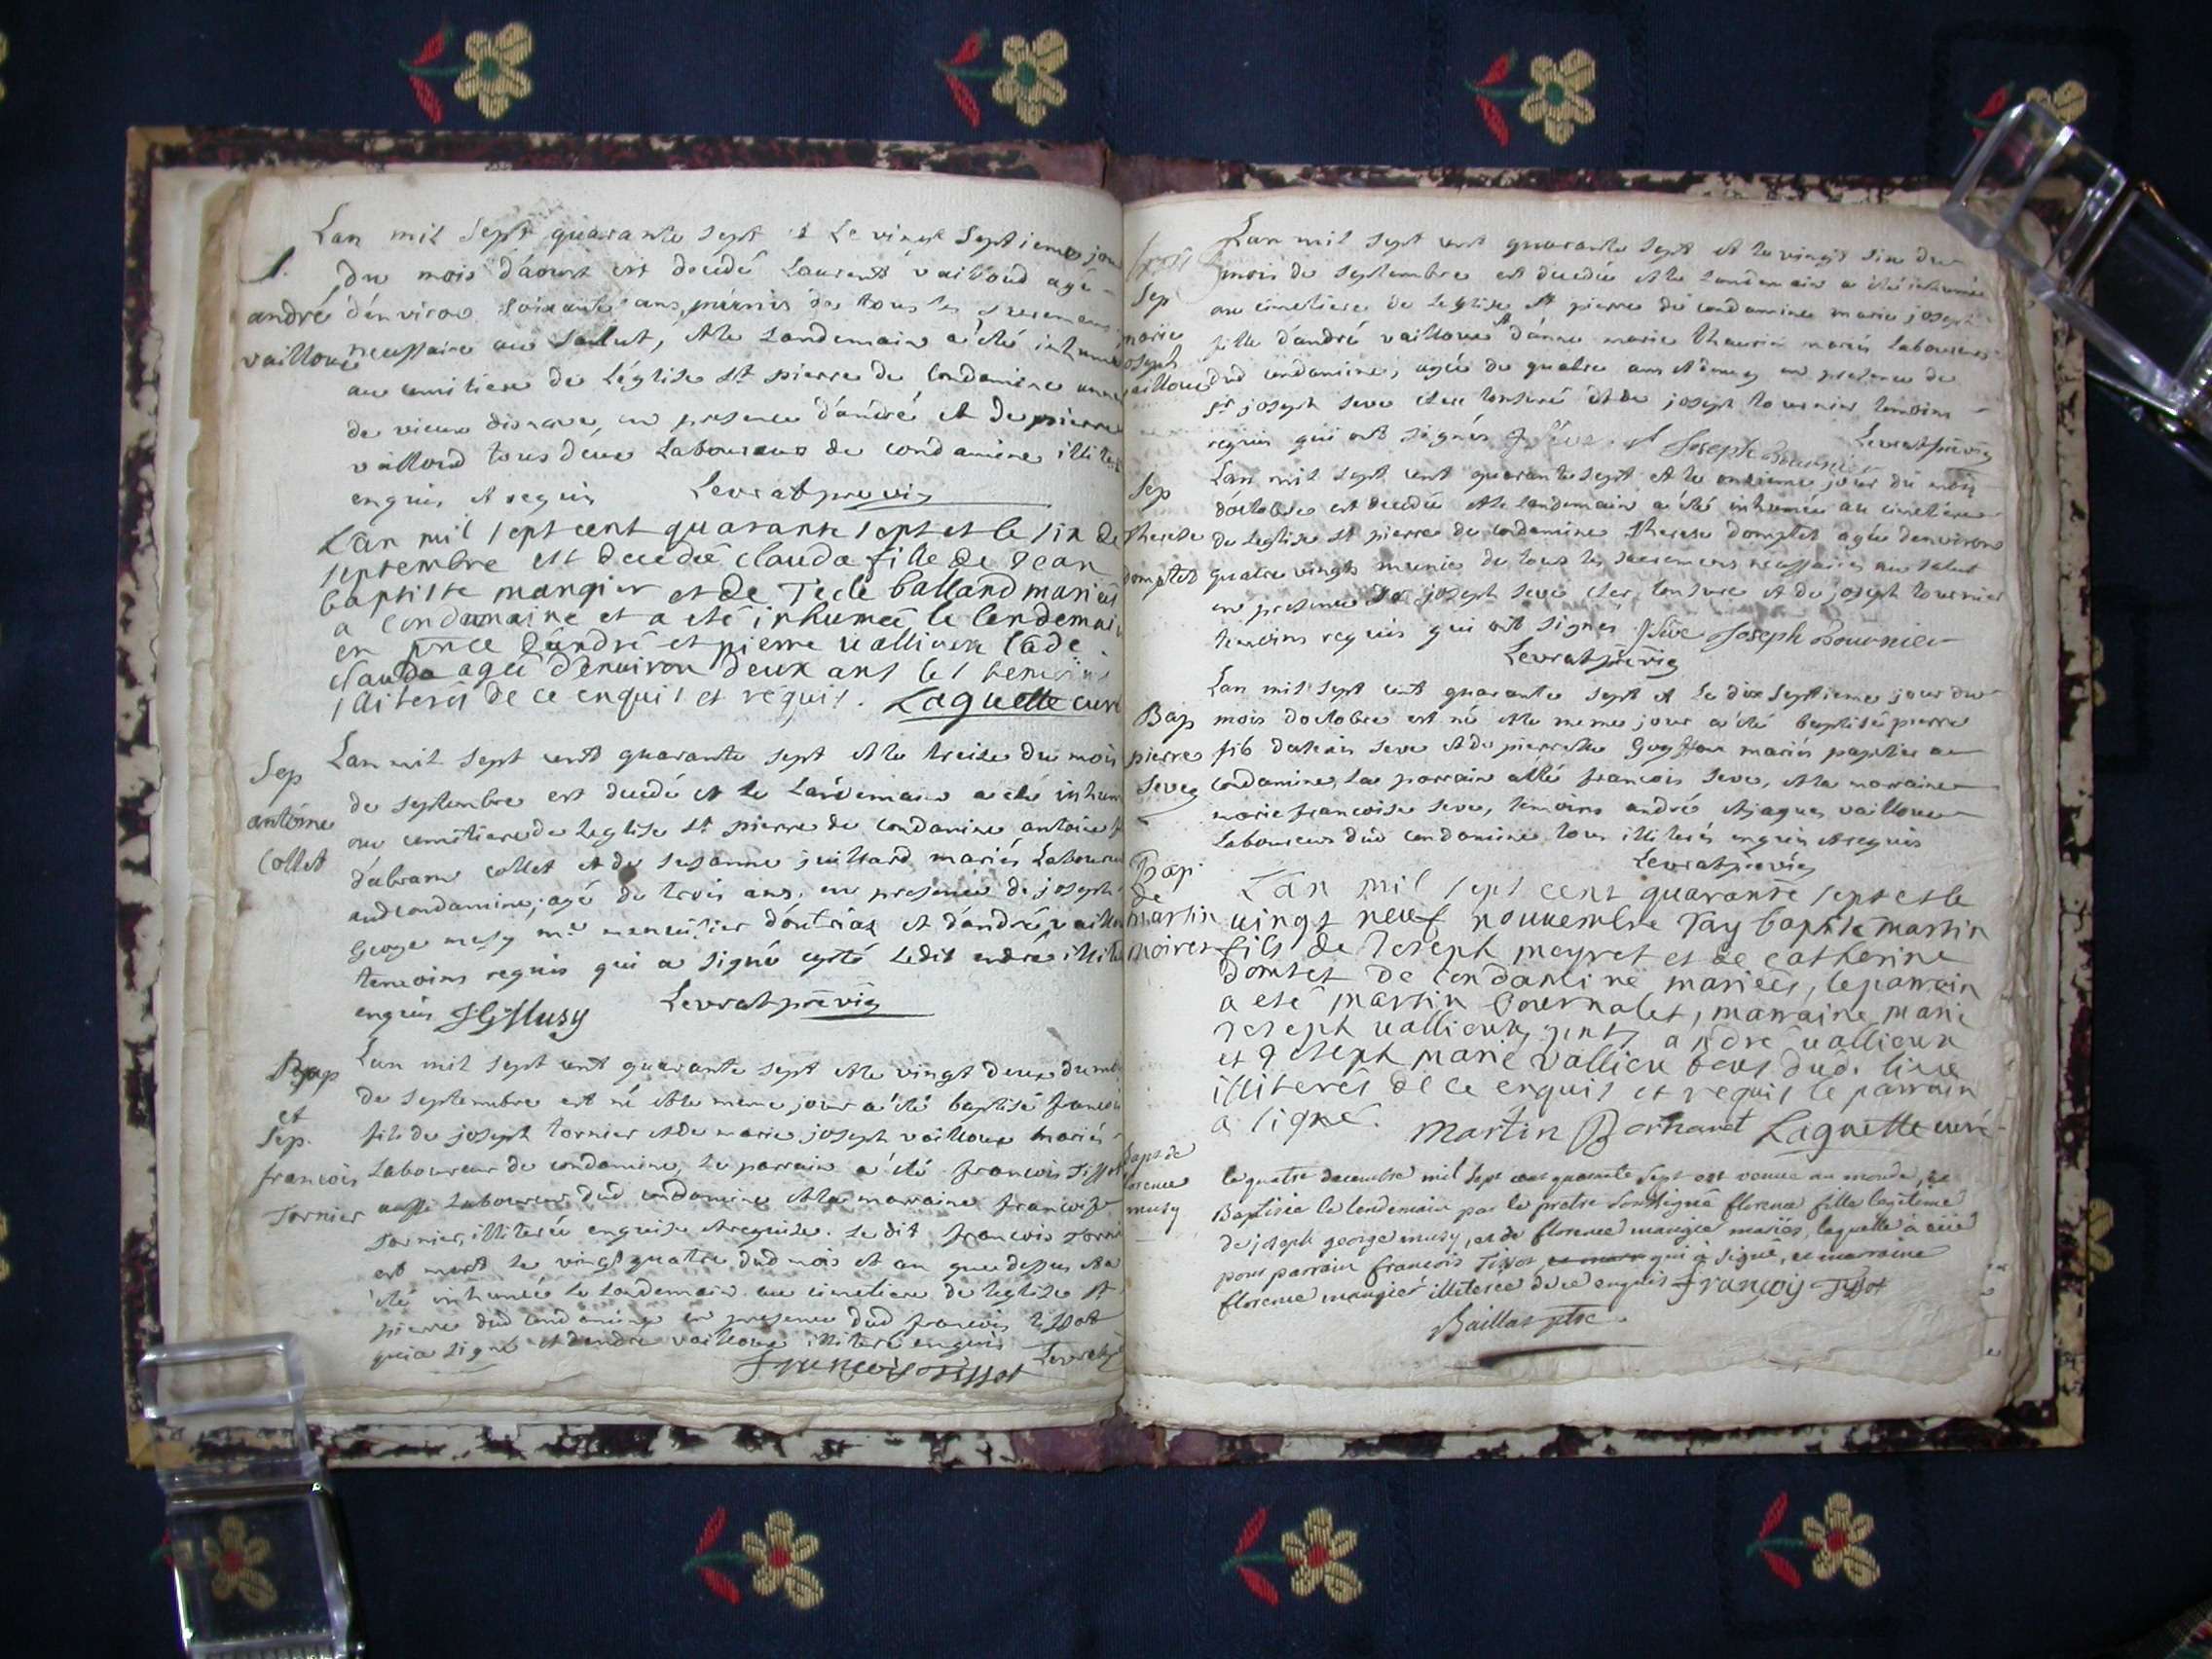 Lan mil sept quarante sept et Le vingt septieme jour
S. du mois d'aoust est decédé Laurent vailloud agé
andré d'environ soixante ans, munis de tous les sacremens
vailloux necessaire au salut, et le landemain a été inhumé
au cemitiere de L'église st pierre de Condamine
de vieux, en presence d'andré et de pierre
vailloud tous deux Laboureurs de condamine illiteré
enquis et requis Levrat previc
Lan mil sept cent quarante sept et le six de
septembre est decedée clauda fille de Jean
baptiste mangier et de Tecle balland mariés
a condamine et a eté inhumée le lendemain
en pnce dandré et pierre vallioux lade
clauda agée d'environ deux ans les
illiterés de ce enquis et requis. Laguette curé
Sep Lan mil sept cent quarante sept et le treise du mois
de septembre est decedé et le Landemain a eté inhumé
antoine au cemitiere de leglise st pierre de condamine antoine
Collet d'abram collet et de susanne juillard mariés Laboureur
aud condamine; agé de trois ans, en presence de joseph
George musy me menuisier d'outriaz et d'andré vailloux
temoins requis qui a signé cité Ledit andré illiteré
enquis JGMusy Levrat previc
Bap Lan mil sept cent quarante sept et le vingt deux du mois
et de septembre est né et le meme jour a été baptisé francois
Sep. fils de joseph tornier et de marie joseph vailloux mariés
francois Laboureur de condamine, le parrain a été francois Tissot
Tornier aussi Laboureur dud condamine et la marraine francoise
Tornier, illiterée enquise et requise. Le dit francois Tornier
est mort le vingt quatre dud mois et an que dessus et a
été inhumé le landemain au cimetiere de leglise st
pierre dud condamine en presence dud francois tissot
qui a signé et dandré vailloux illiteré enquis
francois tissot Levrat
Lan mil sept cent quarante sept et le vingt six du
mois de septembre est decedée et le landemain a été inhumée
Sep au cimetiere de leglise st pierre de condamine marie joseph
marie fille d'andré vailloux et d'anne marie thaurin mariés Laboureurs
joseph
vailloux dud condamine, agée de quatre ans et demy en presence de
sr joseph seve clerc tonsuré et de joseph tournier temoins
requis qui ont signés J Seve. Joseph Tournier Levrat previc
Sep Lan mil sept cent quarante sept et le onzieme jour du mois
d'octobre est decedée et le landemain a été inhumée au cimetiere
therese de leglise st pierre de condamine therese domptet agée denviron
domptet quatre vingts munie de tous les sacremens necessaires au salut
en presence de sr joseph seve clerc tonsure et de joseph tournier
temoins requis qui ont signés JSeve Joseph Tournier
Levrat previc
Lan mil sept cent quarante sept et Le dix Septieme jour du
Bap mois doctobre est né et le meme jour a été baptisé pierre
pierre fils seve et de pierrette mariés papetier a
Seve condamine, Le parrain a été francois seve, et la marraine
marie francoise seve, temoins andré et jaques vailloux
Laboureurs dud condamine tous illiterés enquis et requis
Levrat previc
Bap
de Lan mil sept cent quarante sept et le
martin vingt neuf nouvembre Jay baptise martin
moiret fils de Joseph meyret et de catherine
domtet de condamine mariées, le parrain
a eté martin bournalet, marraine, marie
joseph vallioux, pnts andre vallioux
et Joseph marie vallieu tous dud. lieu
illiterés de ce enquis et requis le parrain
a signé. Martin Laguette curé
bapt de le quatre decembre mil sept cent quarante sept est venue au monde, et
florence Baptisée le lendemain par le pretre soussigné florence fille legitime
musy de joseph george musy, et de florence maugier mariés, laquelle à eüe
pour parrain francois Tissot qui a signé, et marraine
florence maugier illiteree de ce enquis françois Tissot
Baillat ptre